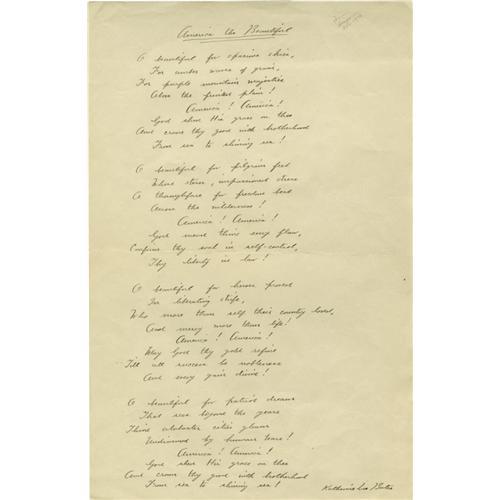 America the Beautiful
O beautiful for spacious skies,
For amber waves of grain,
For purple mountain majesties
Above the fruited plain!
America! America!
God shed His grace on thee
And crown thy good with brotherhood
From sea to shining sea!
O beautiful for pilgrim feet
Whose stern, impassioned stress
A thoroughfare for freedom beat
Across the wilderness!
America! America!
God mend thine every flaw,
Confirm thy soul in self-control,
Thy liberty in law!
O beautiful for heroes proved
In liberating strife,
Who more than self their country loved,
And mercy more than life!
America! America!
May God thy gold refine
Till all success be nobleness
And every gain divine!
O beautiful for patriot dream
That sees beyond the years
Thine alabaster cities gleam
Undimmed by human tears!
America! America!
God shed His grace on thee
And crown thy good with brotherhood
From sea to shining sea!
Katharine Lee Bates